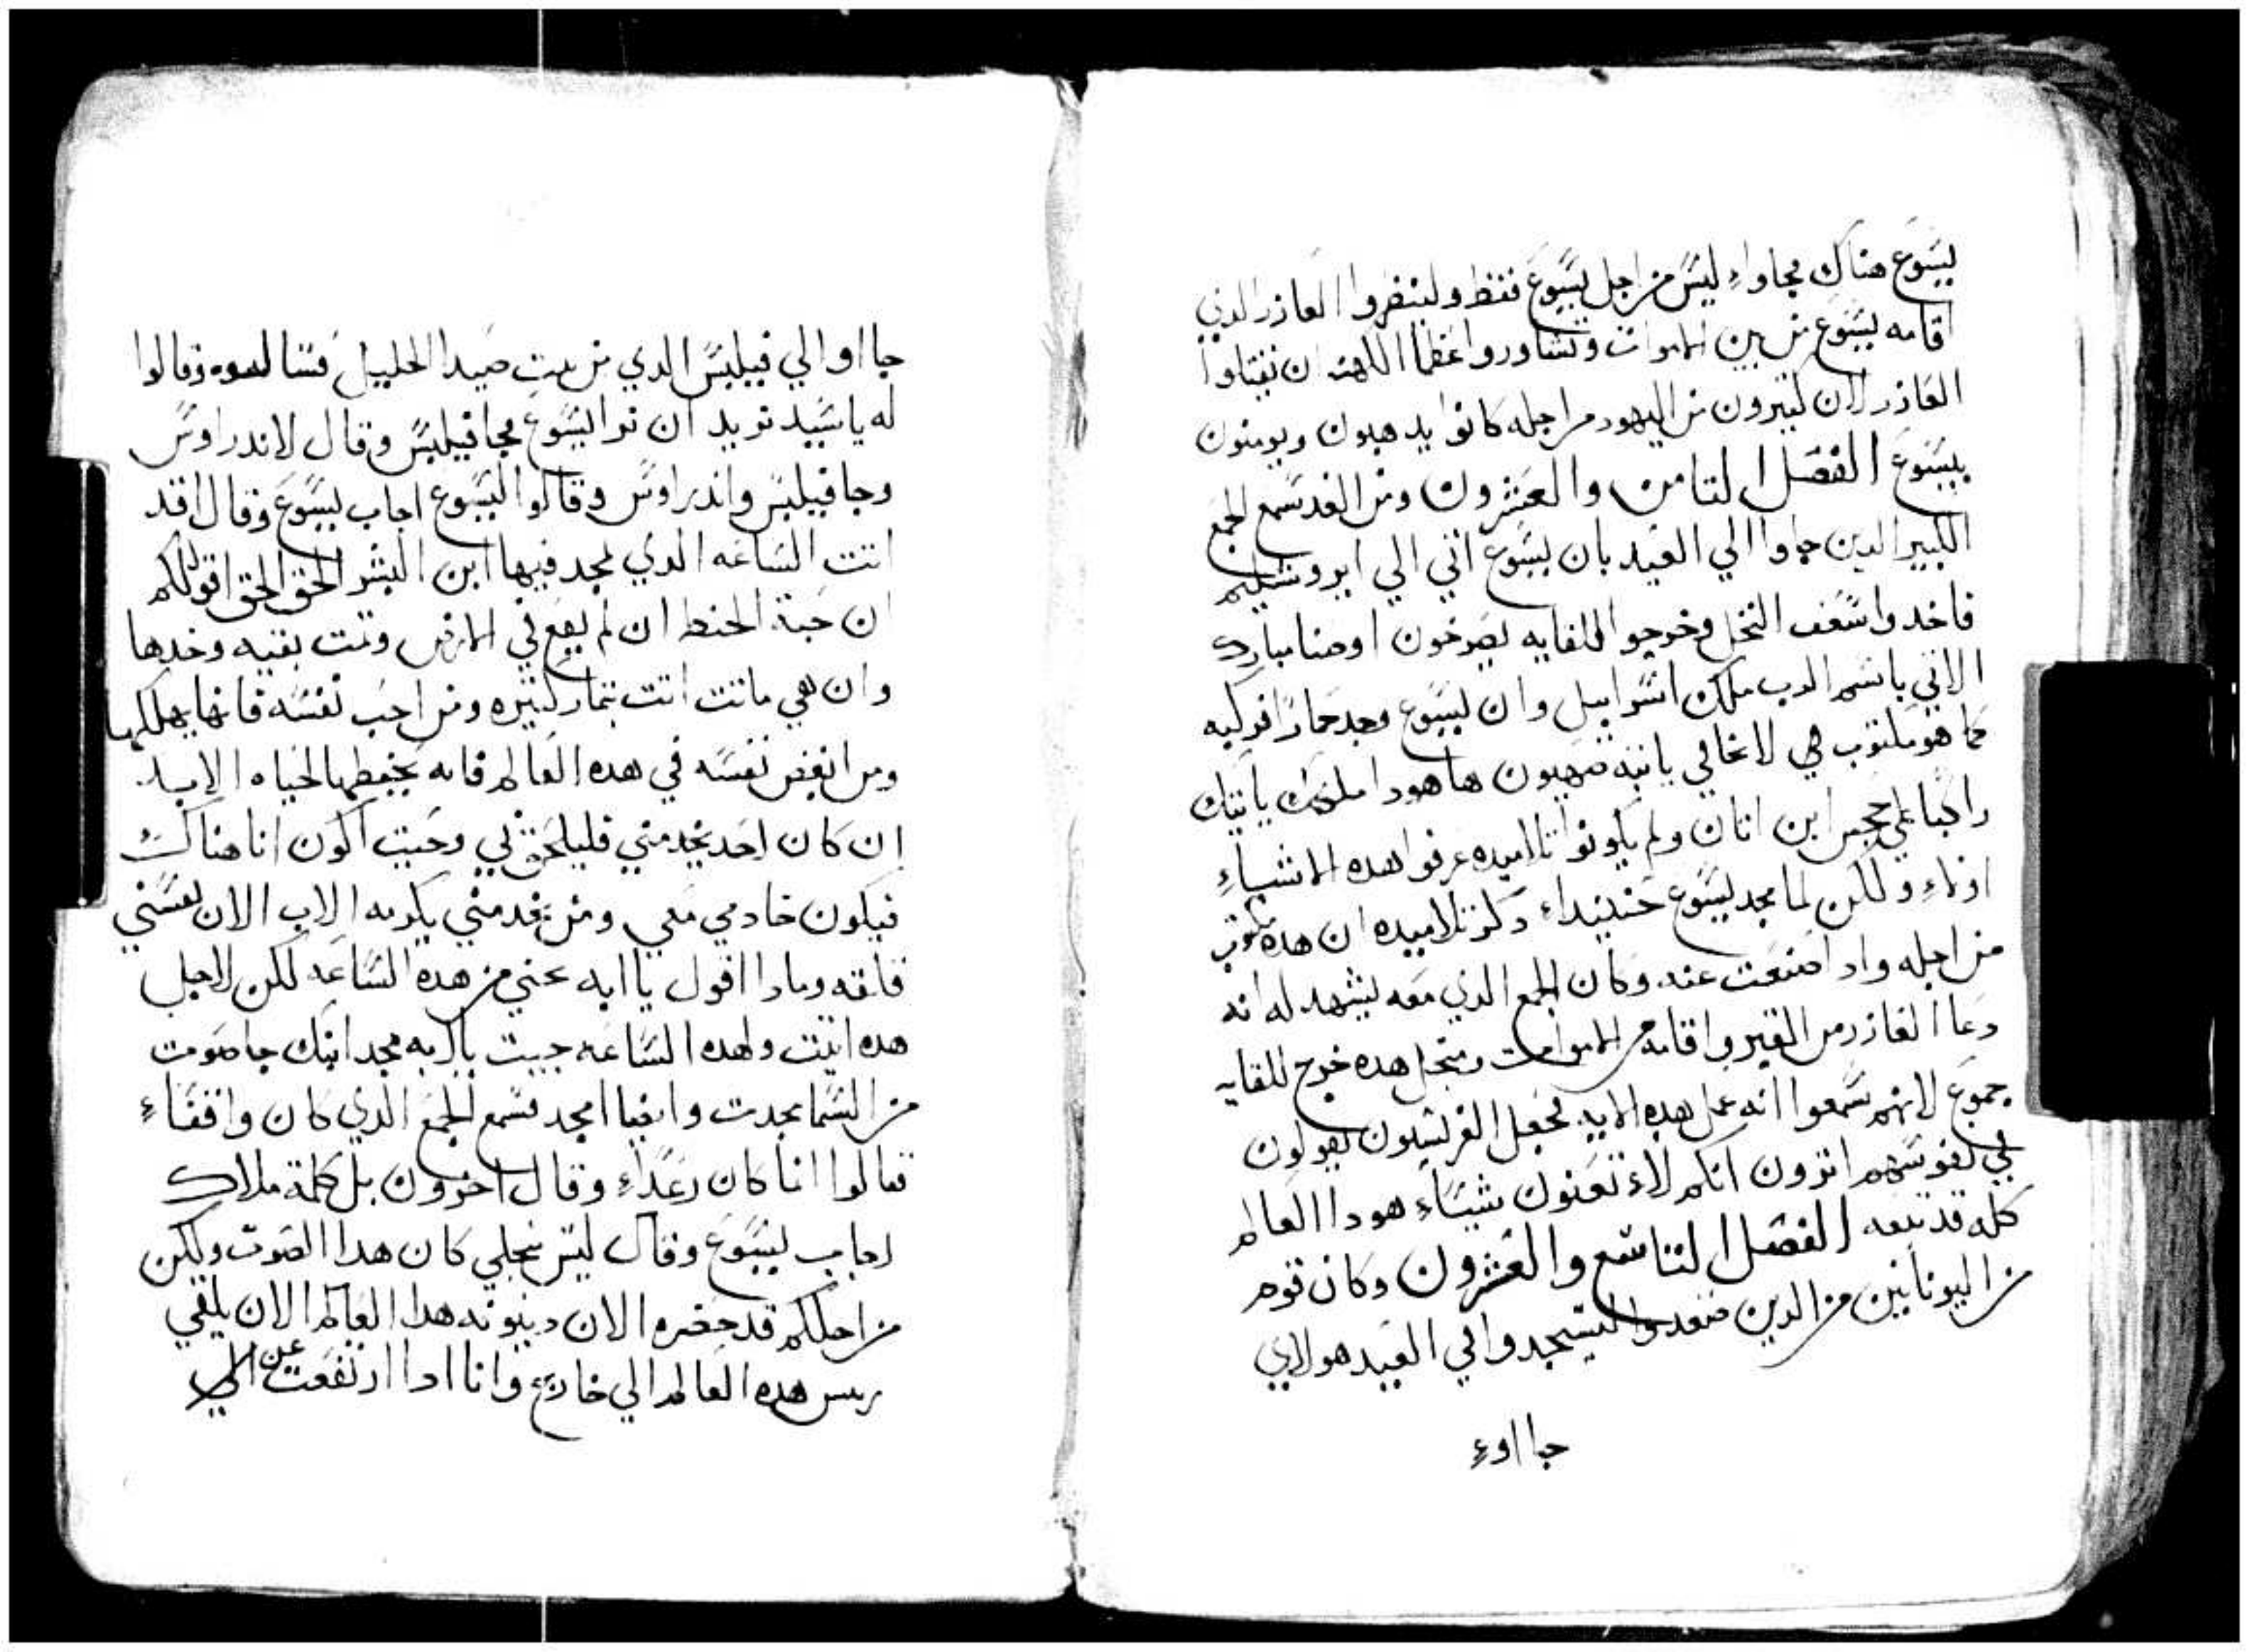 يسوع هناك فجاواء ليس من اجل يسوع فقط ولينظروا العازر الدي
اقامه يسوع من بين الاموات وتشاوروا عظما الكهنه ان يقتلوا
العازر لان كتيرون من اليهود من اجله كانوا يدهبون ويومنون
بيسوع الفصل التامن والعشرون ومن الغد سمع الجمع
الكبير الدين جاوا الي العيد بان يسوع اتي الي ايروشليم
فاخدوا سعف النخل وخرجوا للقايه يصرخون اوصنا مبارك
الاتي باسم الرب ملك اسراييل وان يسوع وجد حمارا فركبه
كما هو مكتوب لا تخافي يا ابنة صهيون ها هودا ملكك ياتيك
راكبا علي جحش ابن اتان ولم يكونوا تلاميده عرفوا هده الاشياء
اولاء ولكن لما مجد يسوع حينيداء دكر تلاميده ان هده مكتوب
من اجله واد اصنعت عنه وكان الجمع الدي معه يشهد له انه
دعا العازر من القبر واقامه من الاموات ومنجل هده خرج للقايه
جموع لانهم سمعوا انه عمل هده الايه فجعل الفريسيون يقولون
في نفوسهم اترون انكم لاء تعنون شيياء هودا العالم
كله قد تبعه الفصل التاسع والعشرون وكان قوم
من اليونانيين من الدين صعدوا ليسجدوا في العيد هولاي
جااوء
جااو الي فيلبس الدي من بيت صيدا الجليل فسالوه وقالوا
له يا سيد نريد ان نرا يسوع فجا فيلبس وقال لاندراوس
وجا فيلبس واندراوس وقالوا ليسوع اجاب يسوع وقال قد
اتت الساعه الدي لمجد فيها ابن البشر الحق الحق اقول لكم
ان حبة الحنطه ان لم يقع في الارض وتمت بقيه وحدها
وان هي ماتت اتت بتمار كتيره ومن احب نفسه فانها يهلكها
ومن ابغض نفسه في هده العالم فانه يحفظها لحياه الابد
ان كان احد يخدمني فليلحق بي وحيت اكون انا هناك
فيكون خادمي معي ومن يخدمني يكرمه الاب الان نفسي
قلقه ومادا اقول يا ابه نجني من هده الساعه لكن لاجل
هده اتيت ولهده الساعه جيت يا ابه مجد ابنك جا صوت
من السما مجدت وايضا امجد فسمع الجمع الدي كان واقفاء
قالوا انما كان رعداء وقال اخرون بل كلمة ملاك
اجاب يسوع وقال ليس منجلي كان هدا الصوت ولكن
من اجلكم قد حضره الان دينونه هدا العالم الان يلقي
ريس هده العالم الي خارج وانا ادا ارتفعت عن